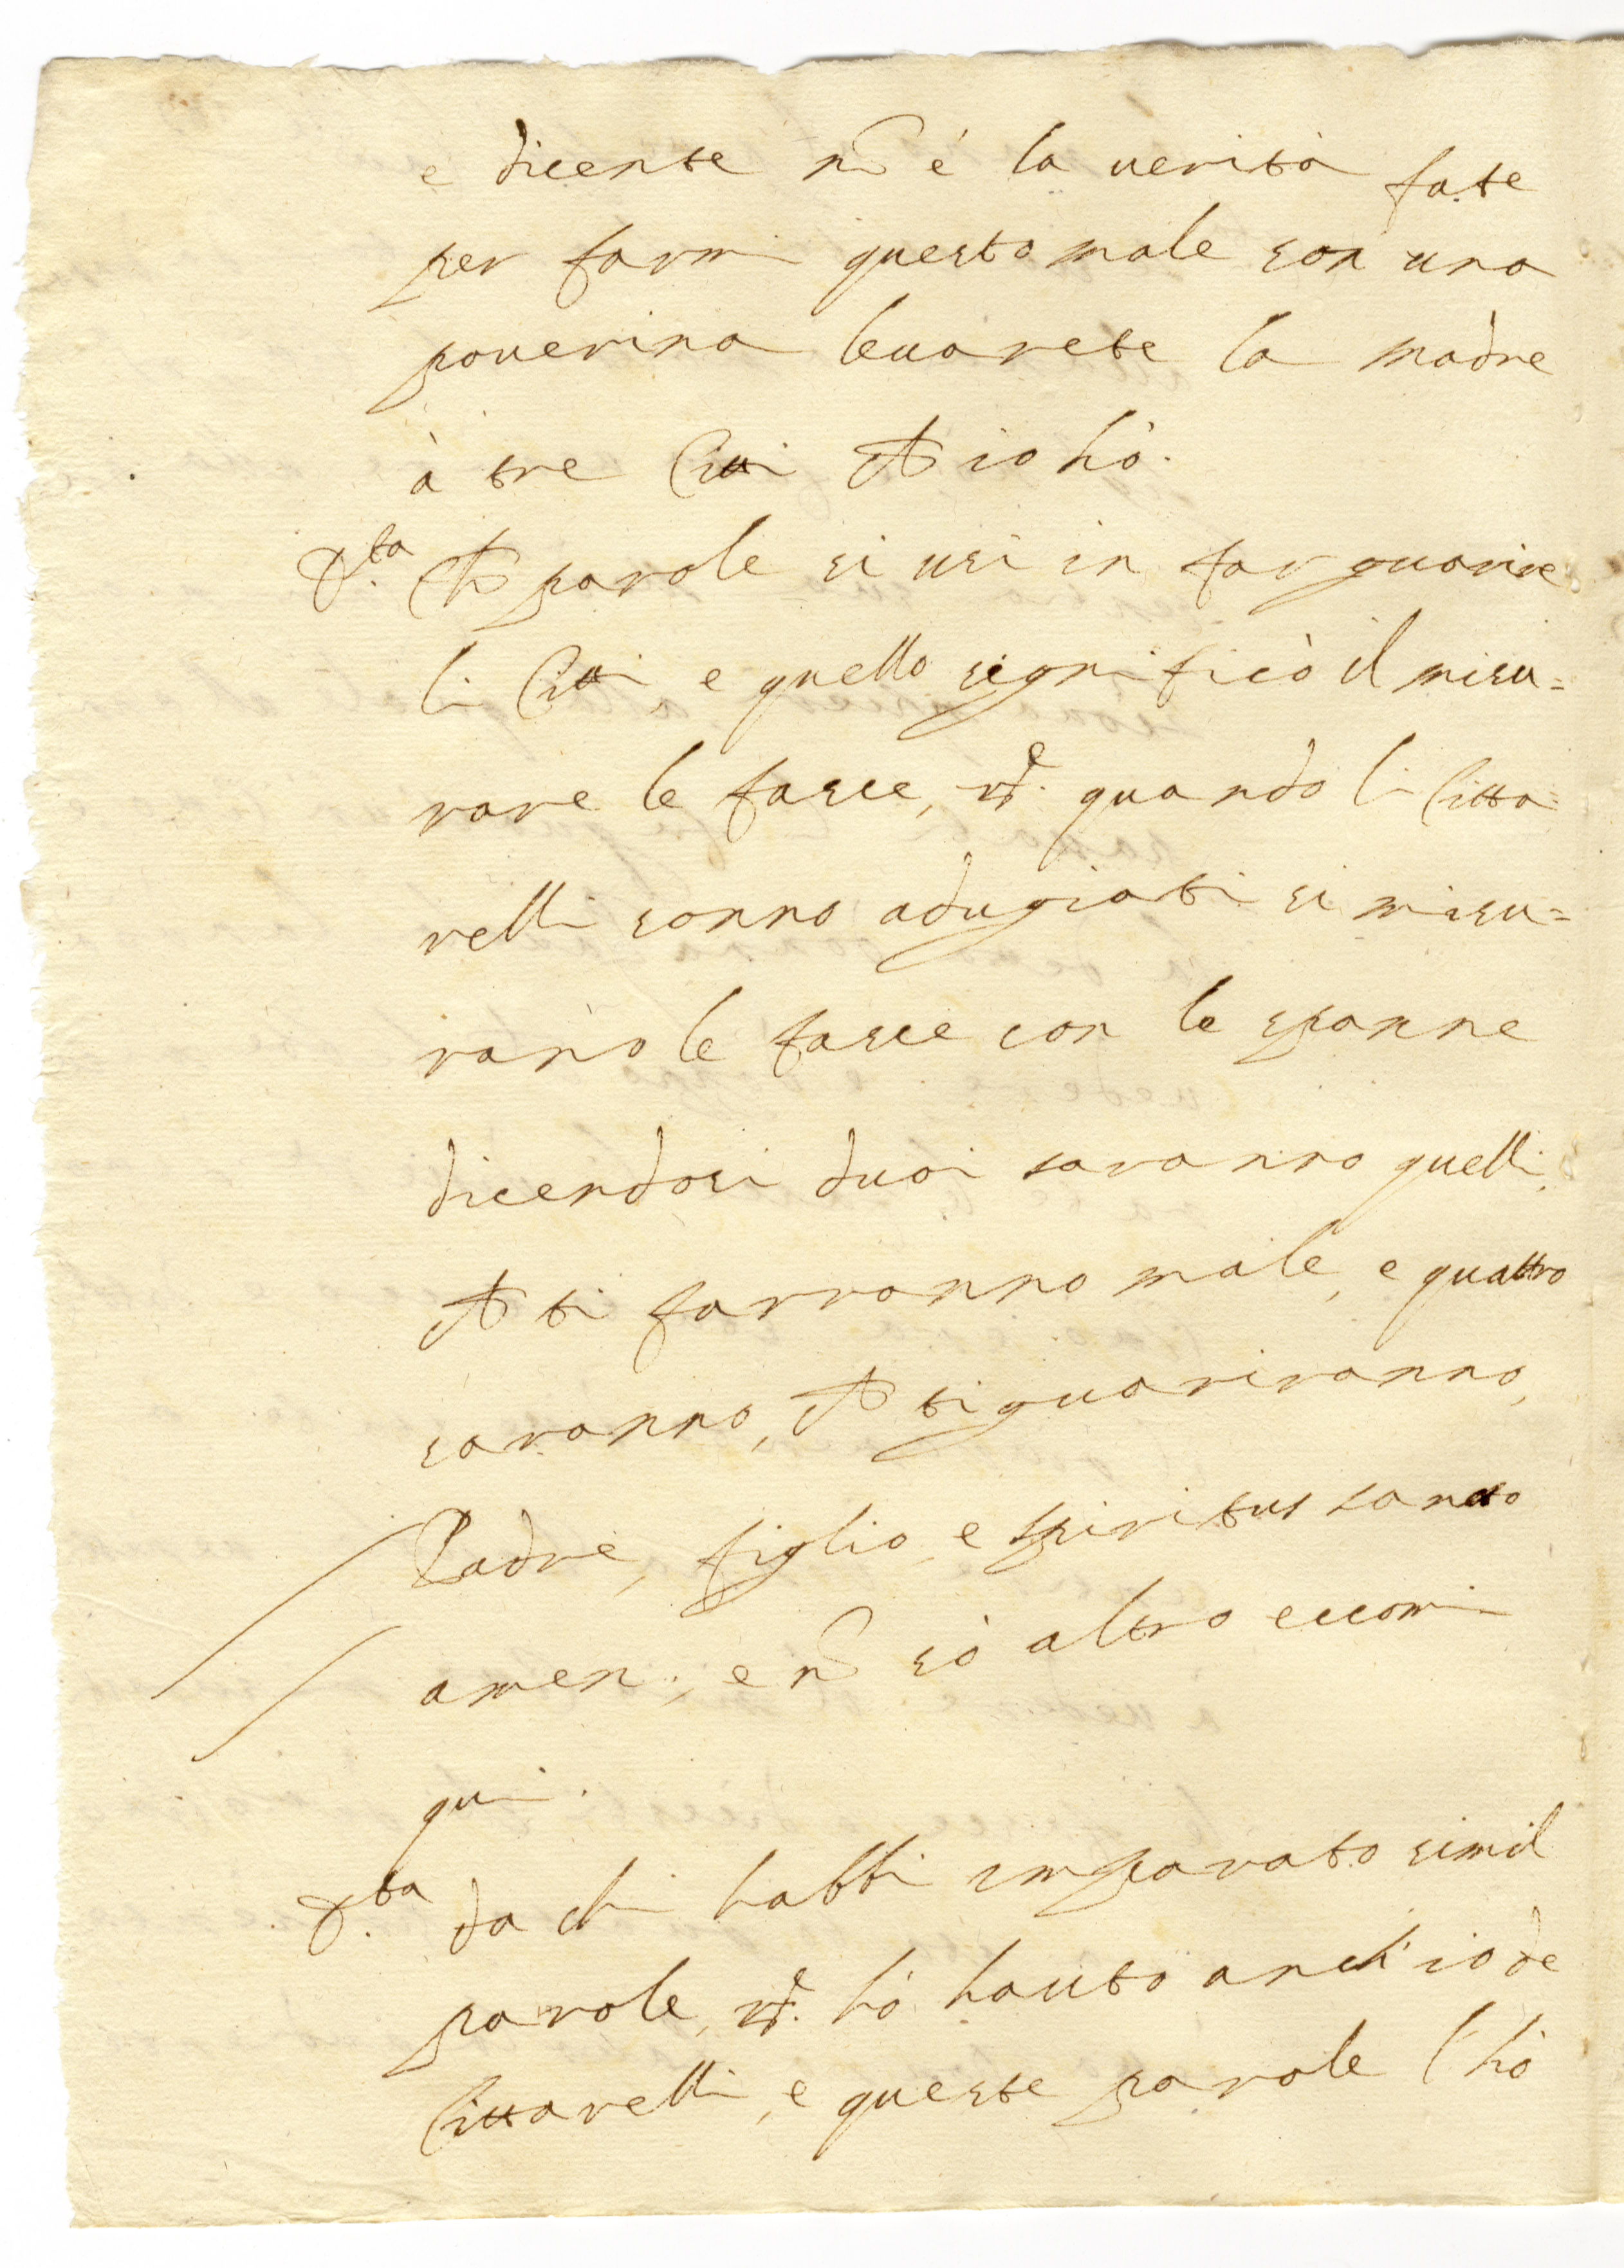 e dicente nō é la uerità fate
per farmi questo male son una
pouerina leuarete la madre
à tre Citti ch̄ io hò.
Ch̄ parole si usi in far guarire
li Citti, e quello significò il misu=
rare le fasce, quando li Citta=
relli sonno adugiati si misu=
ranò le fasce con le spanne
dicendosi duoi saranno quelli,
ch̄ ti farranno male, e quattro
saranno, ch̄ ti guariranno,
Padre, figlio, e spiritus santo
amen; e nō sò altro eccomi
qui.
da chi habbi imparato simil
parole, hò hauto anch'io de
Cittarelli, e queste parole l'hò